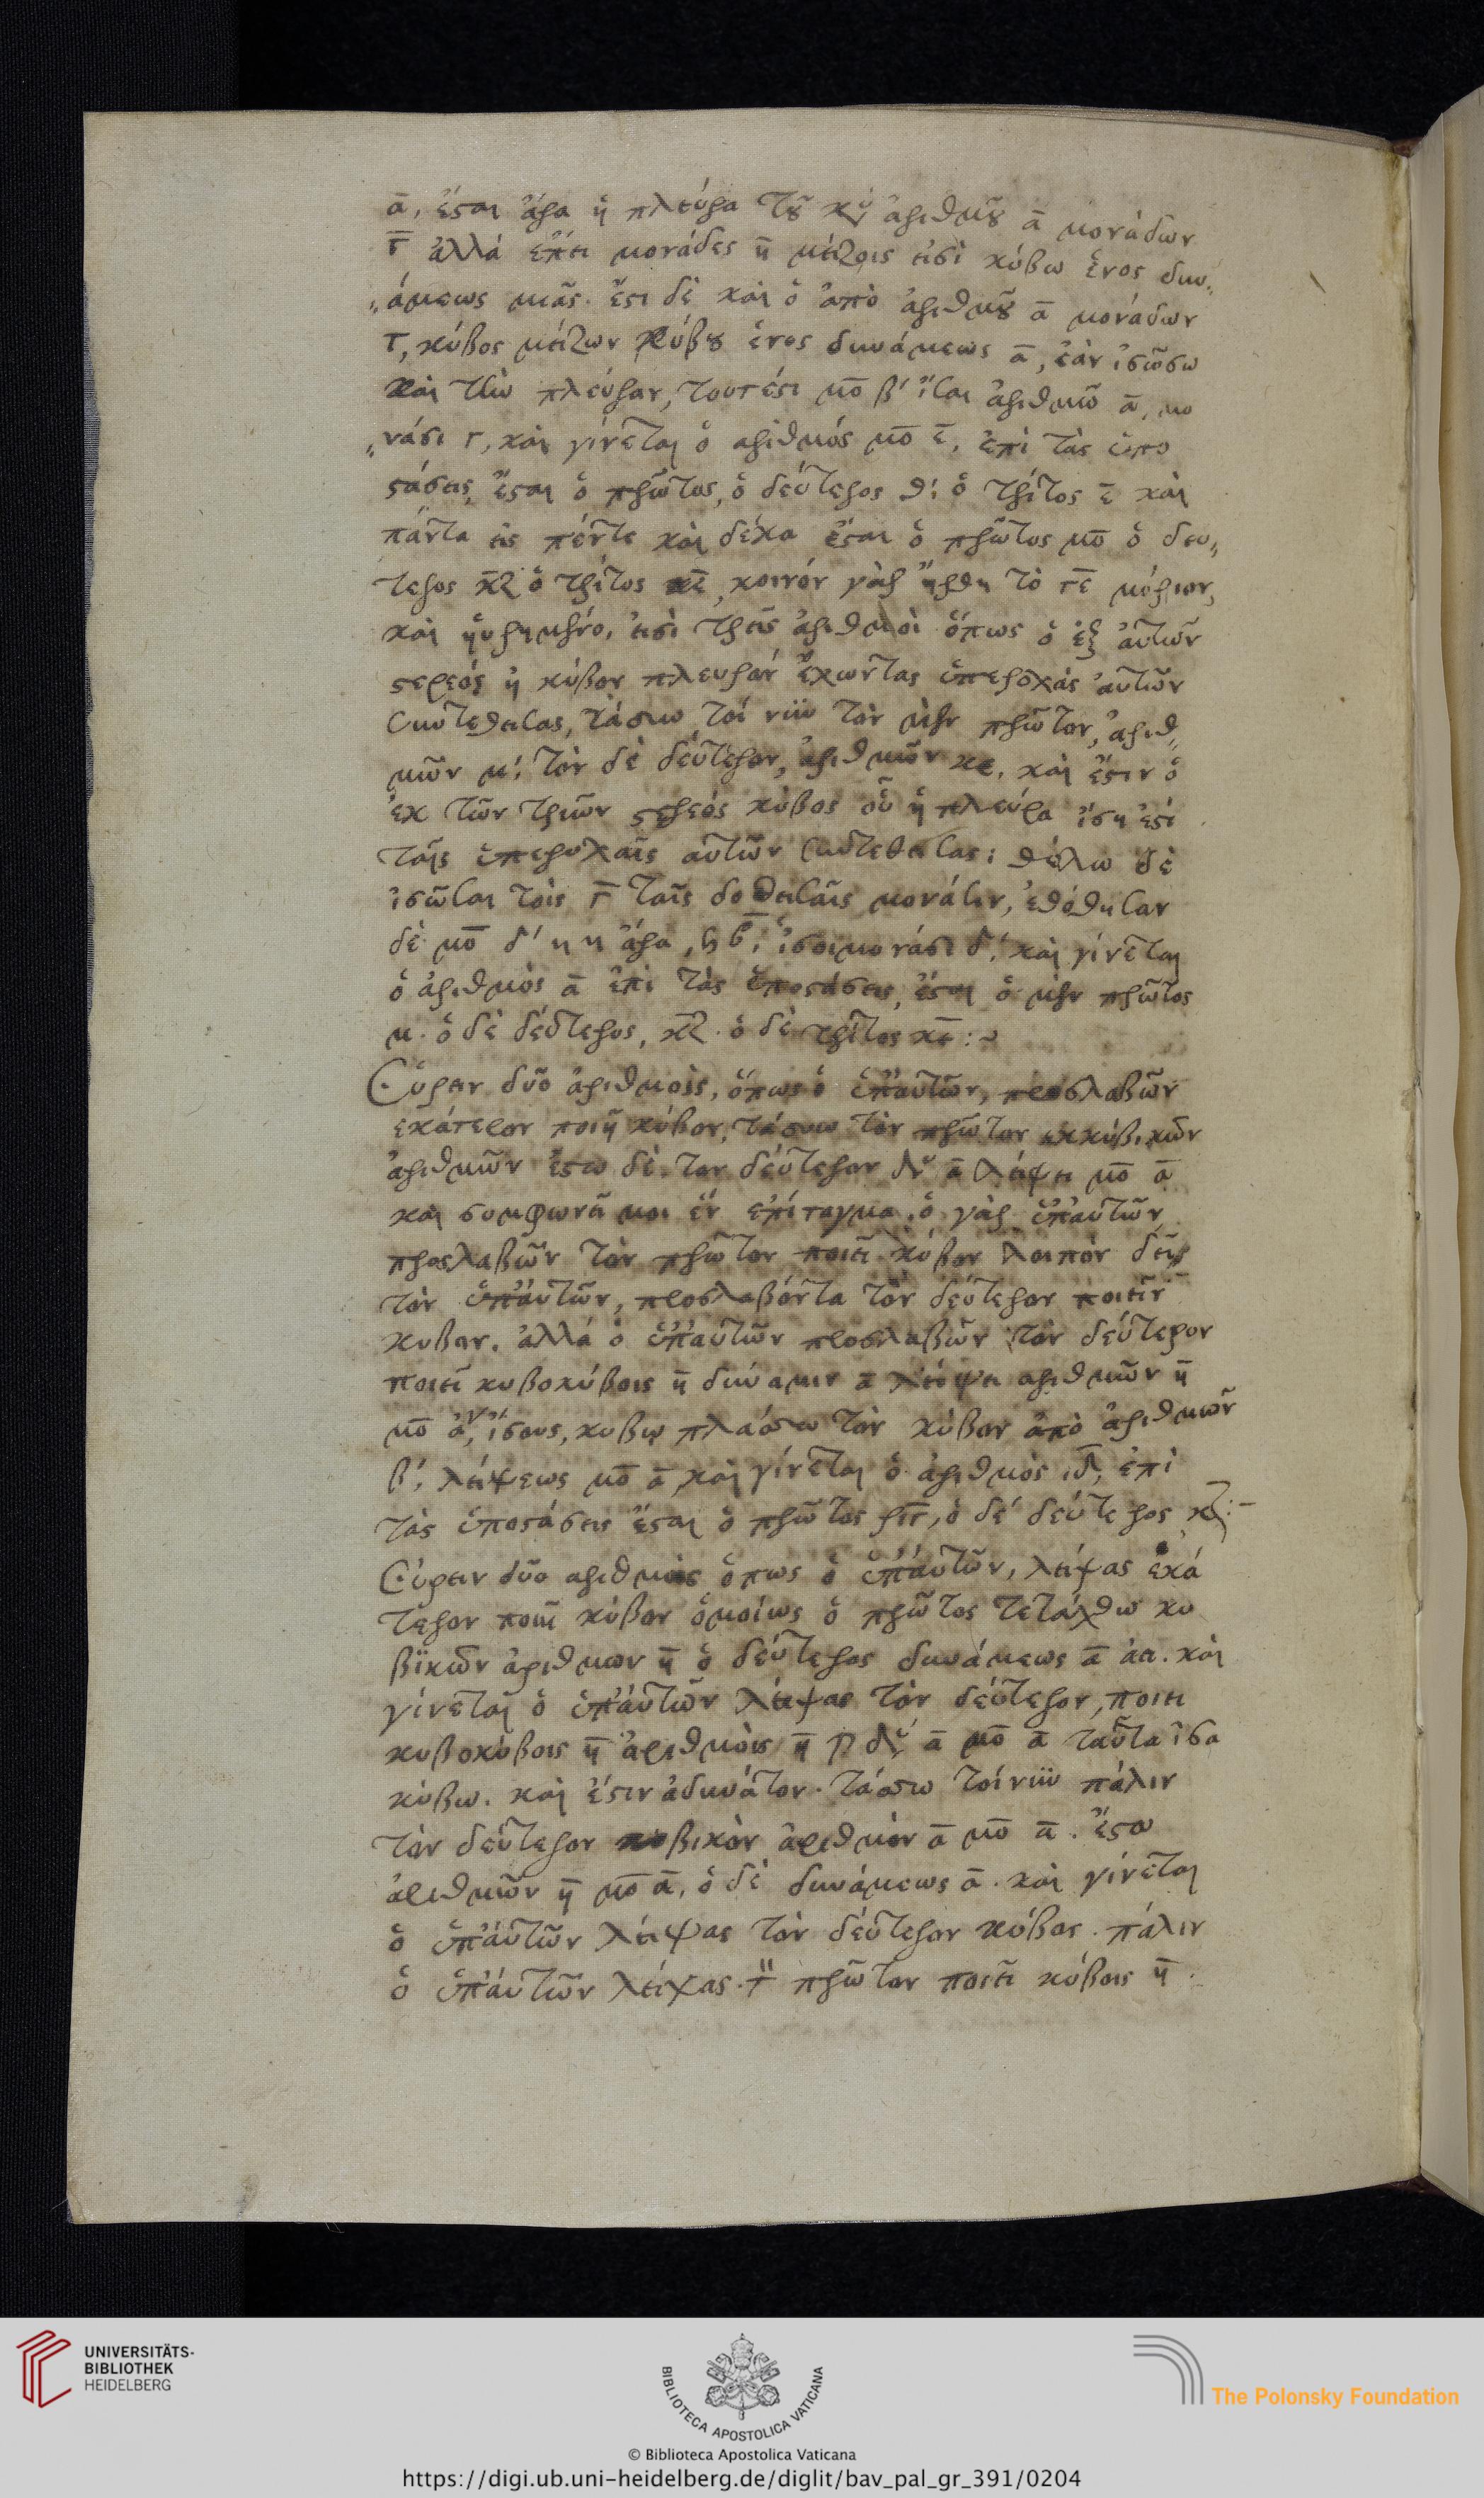 α̅, ἔσται ἄρα ἡ πλεύρα τοῦ κυ ἀριθμοῦ α̅ μονάδων
γ̅ ἀλλά ἐπεὶ μονάδες η̅ μείζοις εἰσὶ κύβω ἑνος δυν
άμεως μιᾶς. ἔστι δὲ καὶ ὁ ἀπὸ ἀριθμοῦ α̅ μονάδων
γ, κύβος μείζων κύβου ἑνος δυνάμεως α̅, ἐὰν ἰσῶσω
καὶ τὴν πλεύραν, τουτέστι μο β' ἴσαι ἀριθμῶ α̅, μο
νάσι γ, καὶ γίνεται ὁ αριθμός μο ε̅, ἐπὶ τὰς ὑπο
στάσεις, ἔσται ὁ πρῶτος, ὁ δεύτερος θ' ὁ τρίτος ε̅ καὶ
πάντα εἰς πέντε καὶ δέκα ἔσται ὁ πρῶτος μο ὁ δευ
τερος κζ ὁ τρίτος κε, κοινόν γὰρ ἤρθη τὸ ιε μόριον,
καὶ ηὑρημένοι εἰσὶ τρεῖς ἀριθμοὶ ὅπως ὁ ἐξ αὐτῶν
στερεός ἢ κύβον πλευράν ἔχωντας ὑπεροχάς αὐτῶν
συντεθείσας, τάσσω τοί νυν τὸν μὲν πρῶτον, ἀριθ
μῶν μ' τὸν δὲ δεύτερον, ἀριθμῶν κε. καὶ ἔστιν ὁ
ἐκ τῶν τριῶν στερεός κύβος οὗ ἡ πλεύρα ἴση ἐστί
ταῖς ὑπεροχαῖς αὐτῶν συντεθείσας; θέλω δὲ
ἰσῶσαι τοῖς γ̅ ταῖς δοθείσαῖς μονάσιν, ἐδόθησαν
δὲ μο δ' η η ἄρα, ἰσοι μονάσι δ', καὶ γίνεται
ὁ ἀριθμὸς α̅ ἐπὶ τὰς ὑποστάσεις, ἔσται ὁ μὲν πρῶτος
μ. ὁ δὲ δεύτερος, κζ. ὁ δὲ τρίτος κε :~
Εὑρειν δύο ἀριθμοὶς, ὅπως ὁ ὑπ' αὐτῶν, προσλαβῶν
εκάτερον ποιῆ κύβον, τάσσω τὸν πρῶτον κυβικῶν
ἀριθμῶν ἔστω δὲ τον δεύτερον δυ α̅ λείψει μο α̅
καὶ συμφωνεῖ μοι ἕν επίταγμα. ὁ γὰρ ὑπ' αὐτῶν
προσλαβῶν τὸν πρῶτον ποιεῖ κύβον λοιπόν δεῖ
τὸν ὑπ' αὐτῶν, προσλαβόντα τὸν δεύτερον ποιεῖν
κυβον. ἀλλά ὁ ὑπ' αὐτῶν προσλαβῶν τὸν δεύτερον
ποιεῖ κυβοκύβοις η̅ δυναμιν α̅ λείψει αριθμῶν η̅
μο α, ἴσους, κυβω πλάσσω τὸν κύβον ἀπὸ ἀριθμῶν
β', λείψεως μο α̅ καὶ γίνεται ὁ ἀριθμὸς ιδ, ἐπὶ
τὰς ὑποστάσεις ἔσται ὁ πρῶτος ριγ, ὁ δὲ δεύτερος κζ:-
Εὑρειν δύο αριθμοις ὅπως ὁ ὑπ' αὐτῶν, λείψας ἑκά
τερον ποιῆ κύβον ὁμοίως ὁ πρῶτος τετάχθω κυ
βϊκῶν ἀριθμων η̅ ὁ δεύτερος δυνάμεως α̅ ἀα. καὶ
γίνεται ὁ ὑπ' αὐτῶν λείψας τὸν δεύτερον, ποιει
κυβοκύβοις η̅ ἀριθμοὶς η̅ δυ α̅ μο α̅ ταῦτα ἴσα
κύβω. καὶ ἔστιν ἀδυνάτον. τάσσω τοίνυν πάλιν
τὸν δεύτερον κυβικὸν ἀριθμὸν α̅ μο α̅. ἔστω
ἀριθμῶν η̅ μο α̅, ὁ δὲ δυνάμεως α̅. καὶ γίνεται
ὁ ὑπ' αὐτῶν λείψας τὸν δεύτερον κύβος. πάλιν
ὁ ὑπ' αὐτῶν λείψας. τ πρῶτον ποιεῖ κύβοις η̅
UNIVERSITÄTS-
BIBLIOTHEK
HEIDELBERG
BIBLIOTECA APOSTOLICA VATICANA
The Polonsky Foundation
© Biblioteca Apostolica Vaticana
https://digi.ub.uni-heidelberg.de/diglit/bav_pal_gr_391/0204